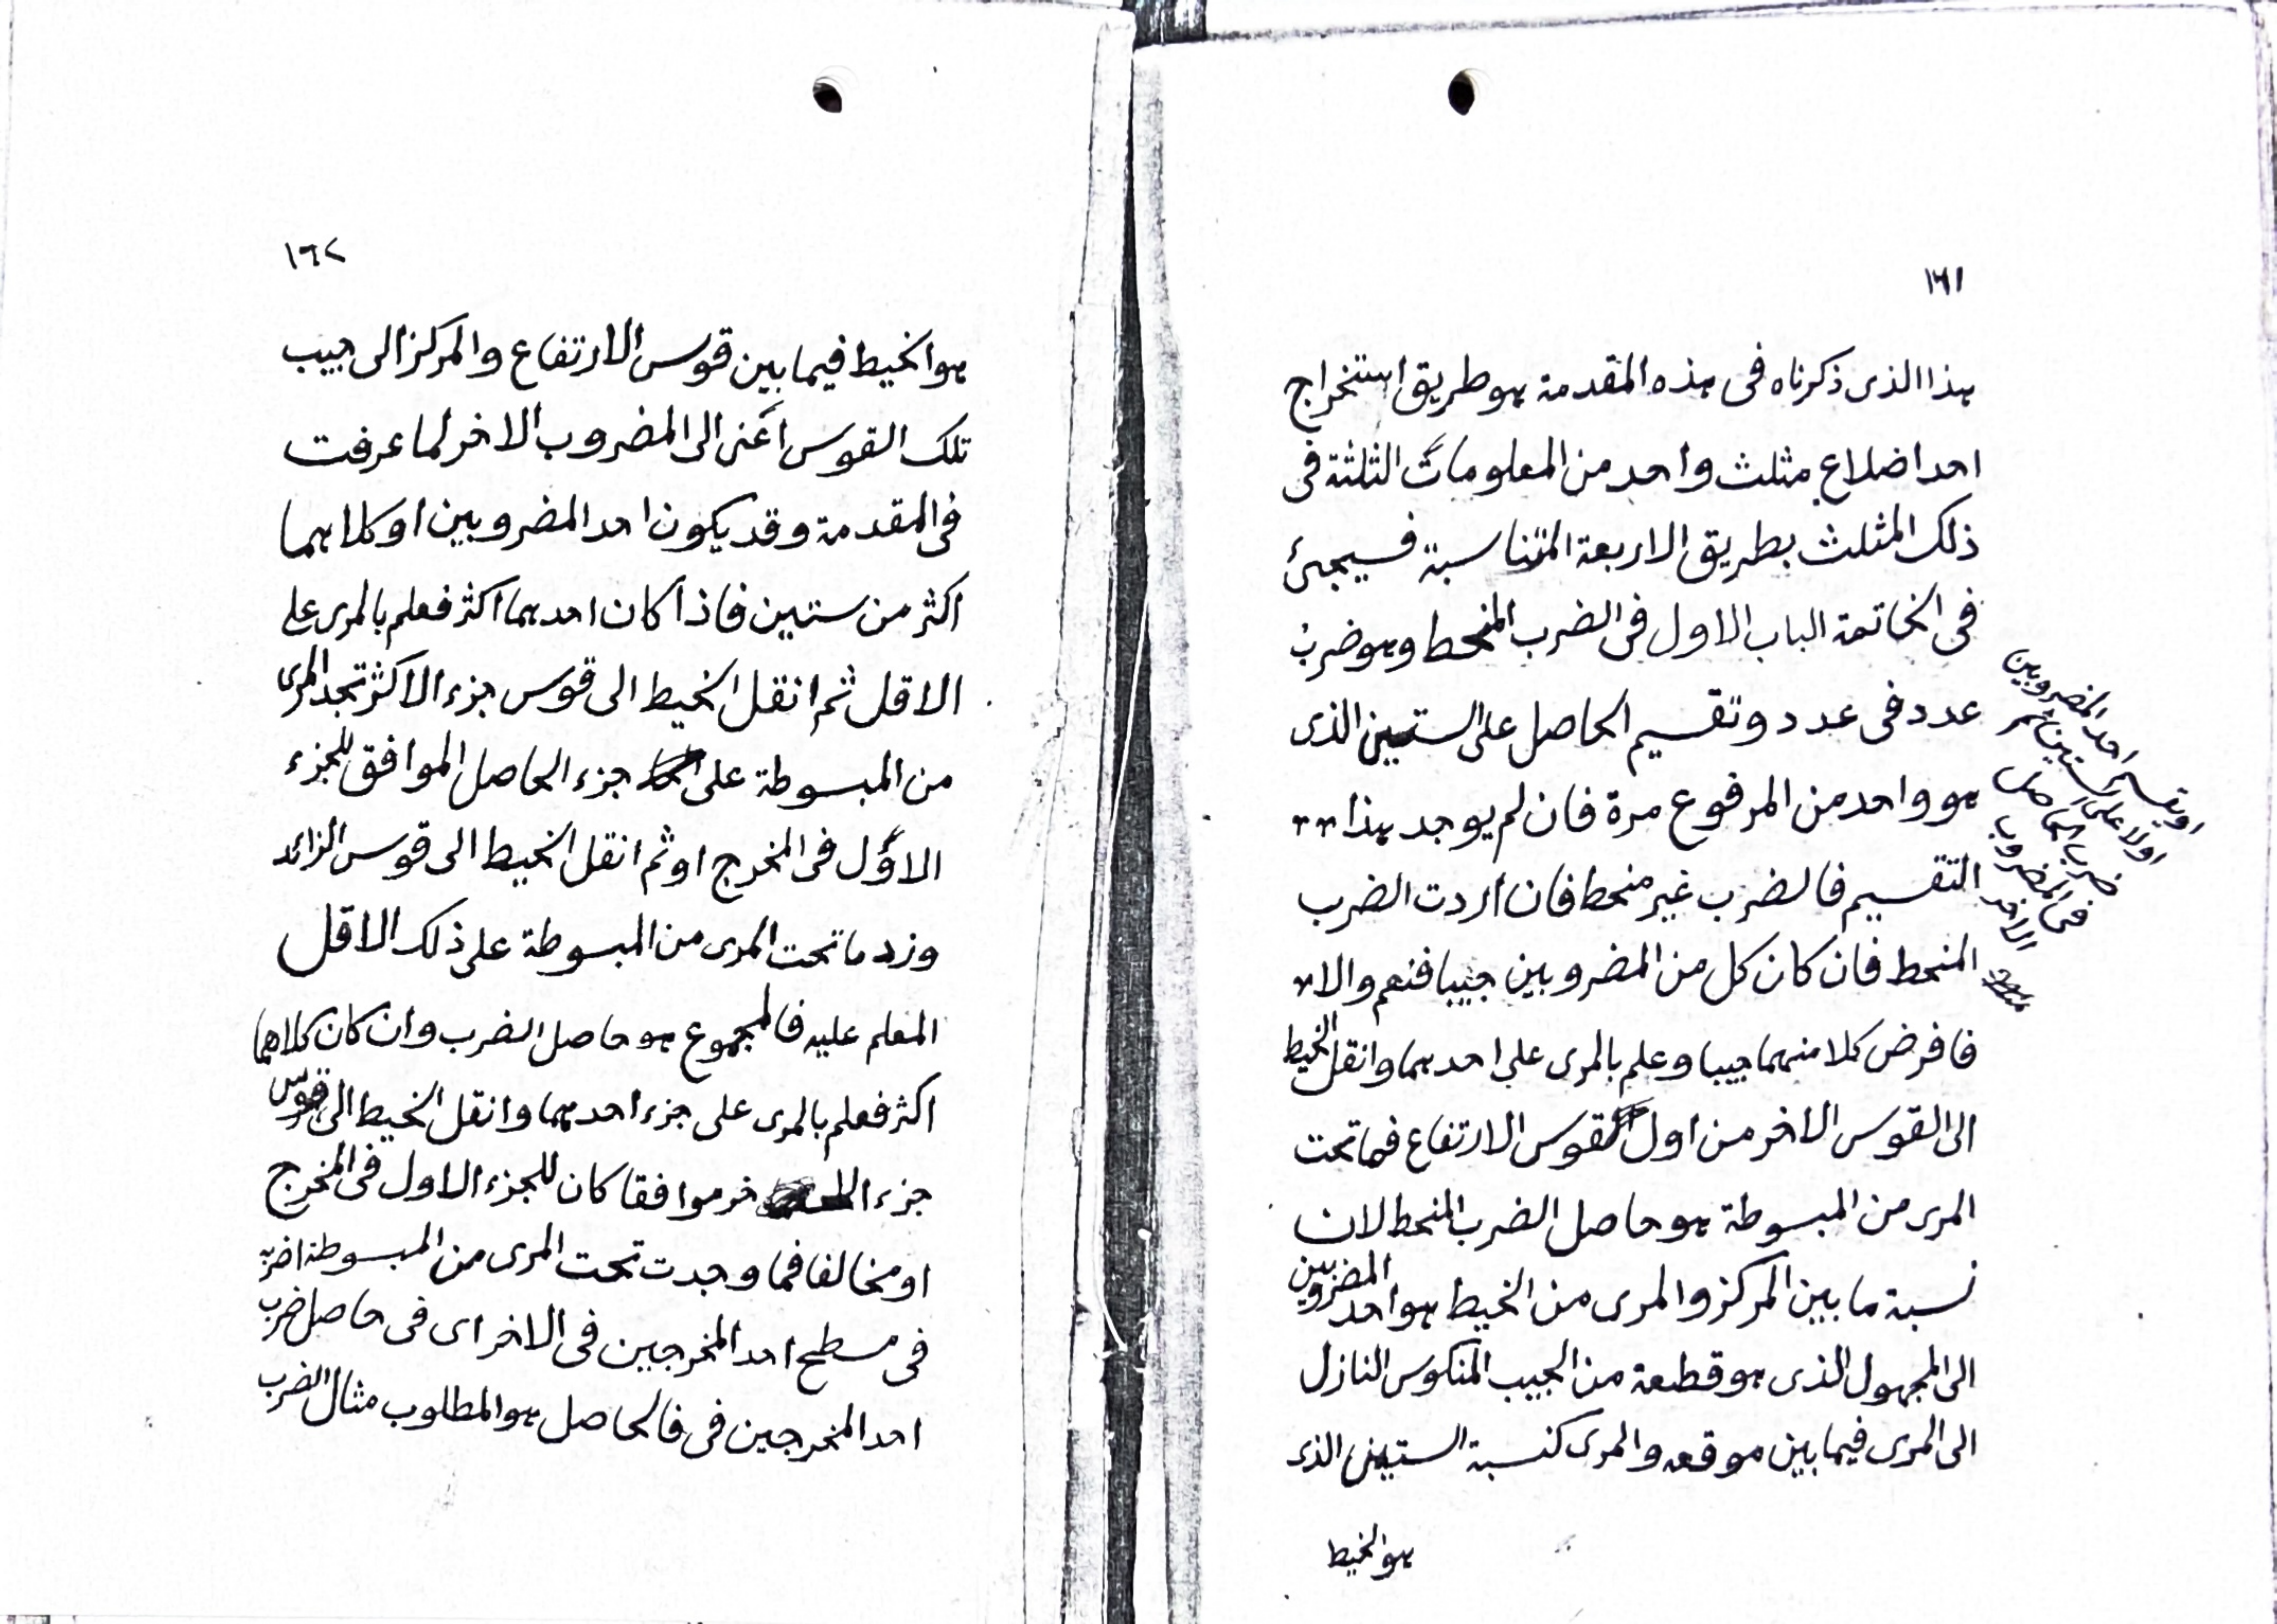 ١٦١
هذا الذى ذكرناه فى هذه المقدمة هو طريق استخراج
احد اضلاع مثلث واحد من المعلومات الثلثة فى
ذلك المثلث بطريق الاربعة المتناسبة فسيجئ
فى الخاتمة الباب الاول فى الضرب المنحط وهو ضرب
عدد فى عدد وتقسيم الحاصل على الستين الذى
هو واحد من المرفوع مرة فان لم يوجد هذا
التقسيم فالضرب غير منحط فان اردت الضرب
المنحط فان كان كل من المضروبين جيبا فنعم والا
فافرض كلا منهما جيبا وعلم بالمرى على احدهما وانقل الخيط
الى القوس الاخر من اول قوس الارتفاع فما تحت
المرى من المبسوطة هو حاصل الضرب المنحط لان
نسبة ما بين المركز والمرى من الخيط هو احد المضروبين
الى المجهول الذى هو قطعة من الجيب المنكوس النازل
الى المرى فيما بين موقعه والمرى كنسبة الستين الذى
هو الخيط
او يقسم احد المضروبين
اولا على الستين ثم
ضرب الحاصل
فى المضروب
الاخر
١٦٢
هو الخيط فيما بين قوس الارتفاع والمركز الى جيب
تلك القوس اعنى الى المضروب الاخر لما عرفت
فى المقدمة وقد يكون احد المضروبين او كلاهما
اكثر من ستين فاذا كان احدهما اكثر فعلم بالمرى على
الاقل ثم انقل الخيط الى قوس جزء الاكثر تجد المرى
من المبسوطة على جزء الحاصل الموافق للجزء
الاول فى المخرج او ثم انقل الخيط الى قوس الزائد
وزد ما تحت المرى من المبسوطة على ذلك الاقل
المعلم عليه فالمجموع هو حاصل الضرب وان كان كلاهما
اكثر فعلم بالمرى على جزء احدهما وانقل الخيط الى قوس
جزء الاخر موافقا كان للجزء الاول فى المخرج
او مخالفا فما وجدت تحت المرى من المبسوطة اضربه
فى مسطح احد المخرجين فى الاخر اى فى حاصل ضرب
احد المخرجين فى فالحاصل هو المطلوب مثال الضرب